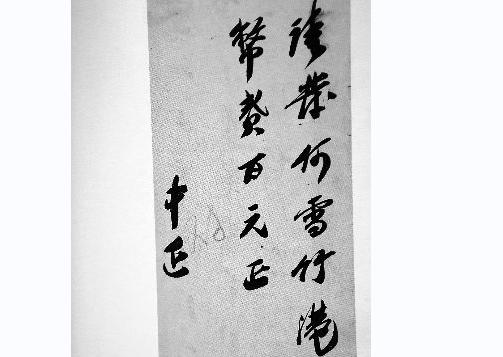 請發何雪竹港
幣百元正
中正